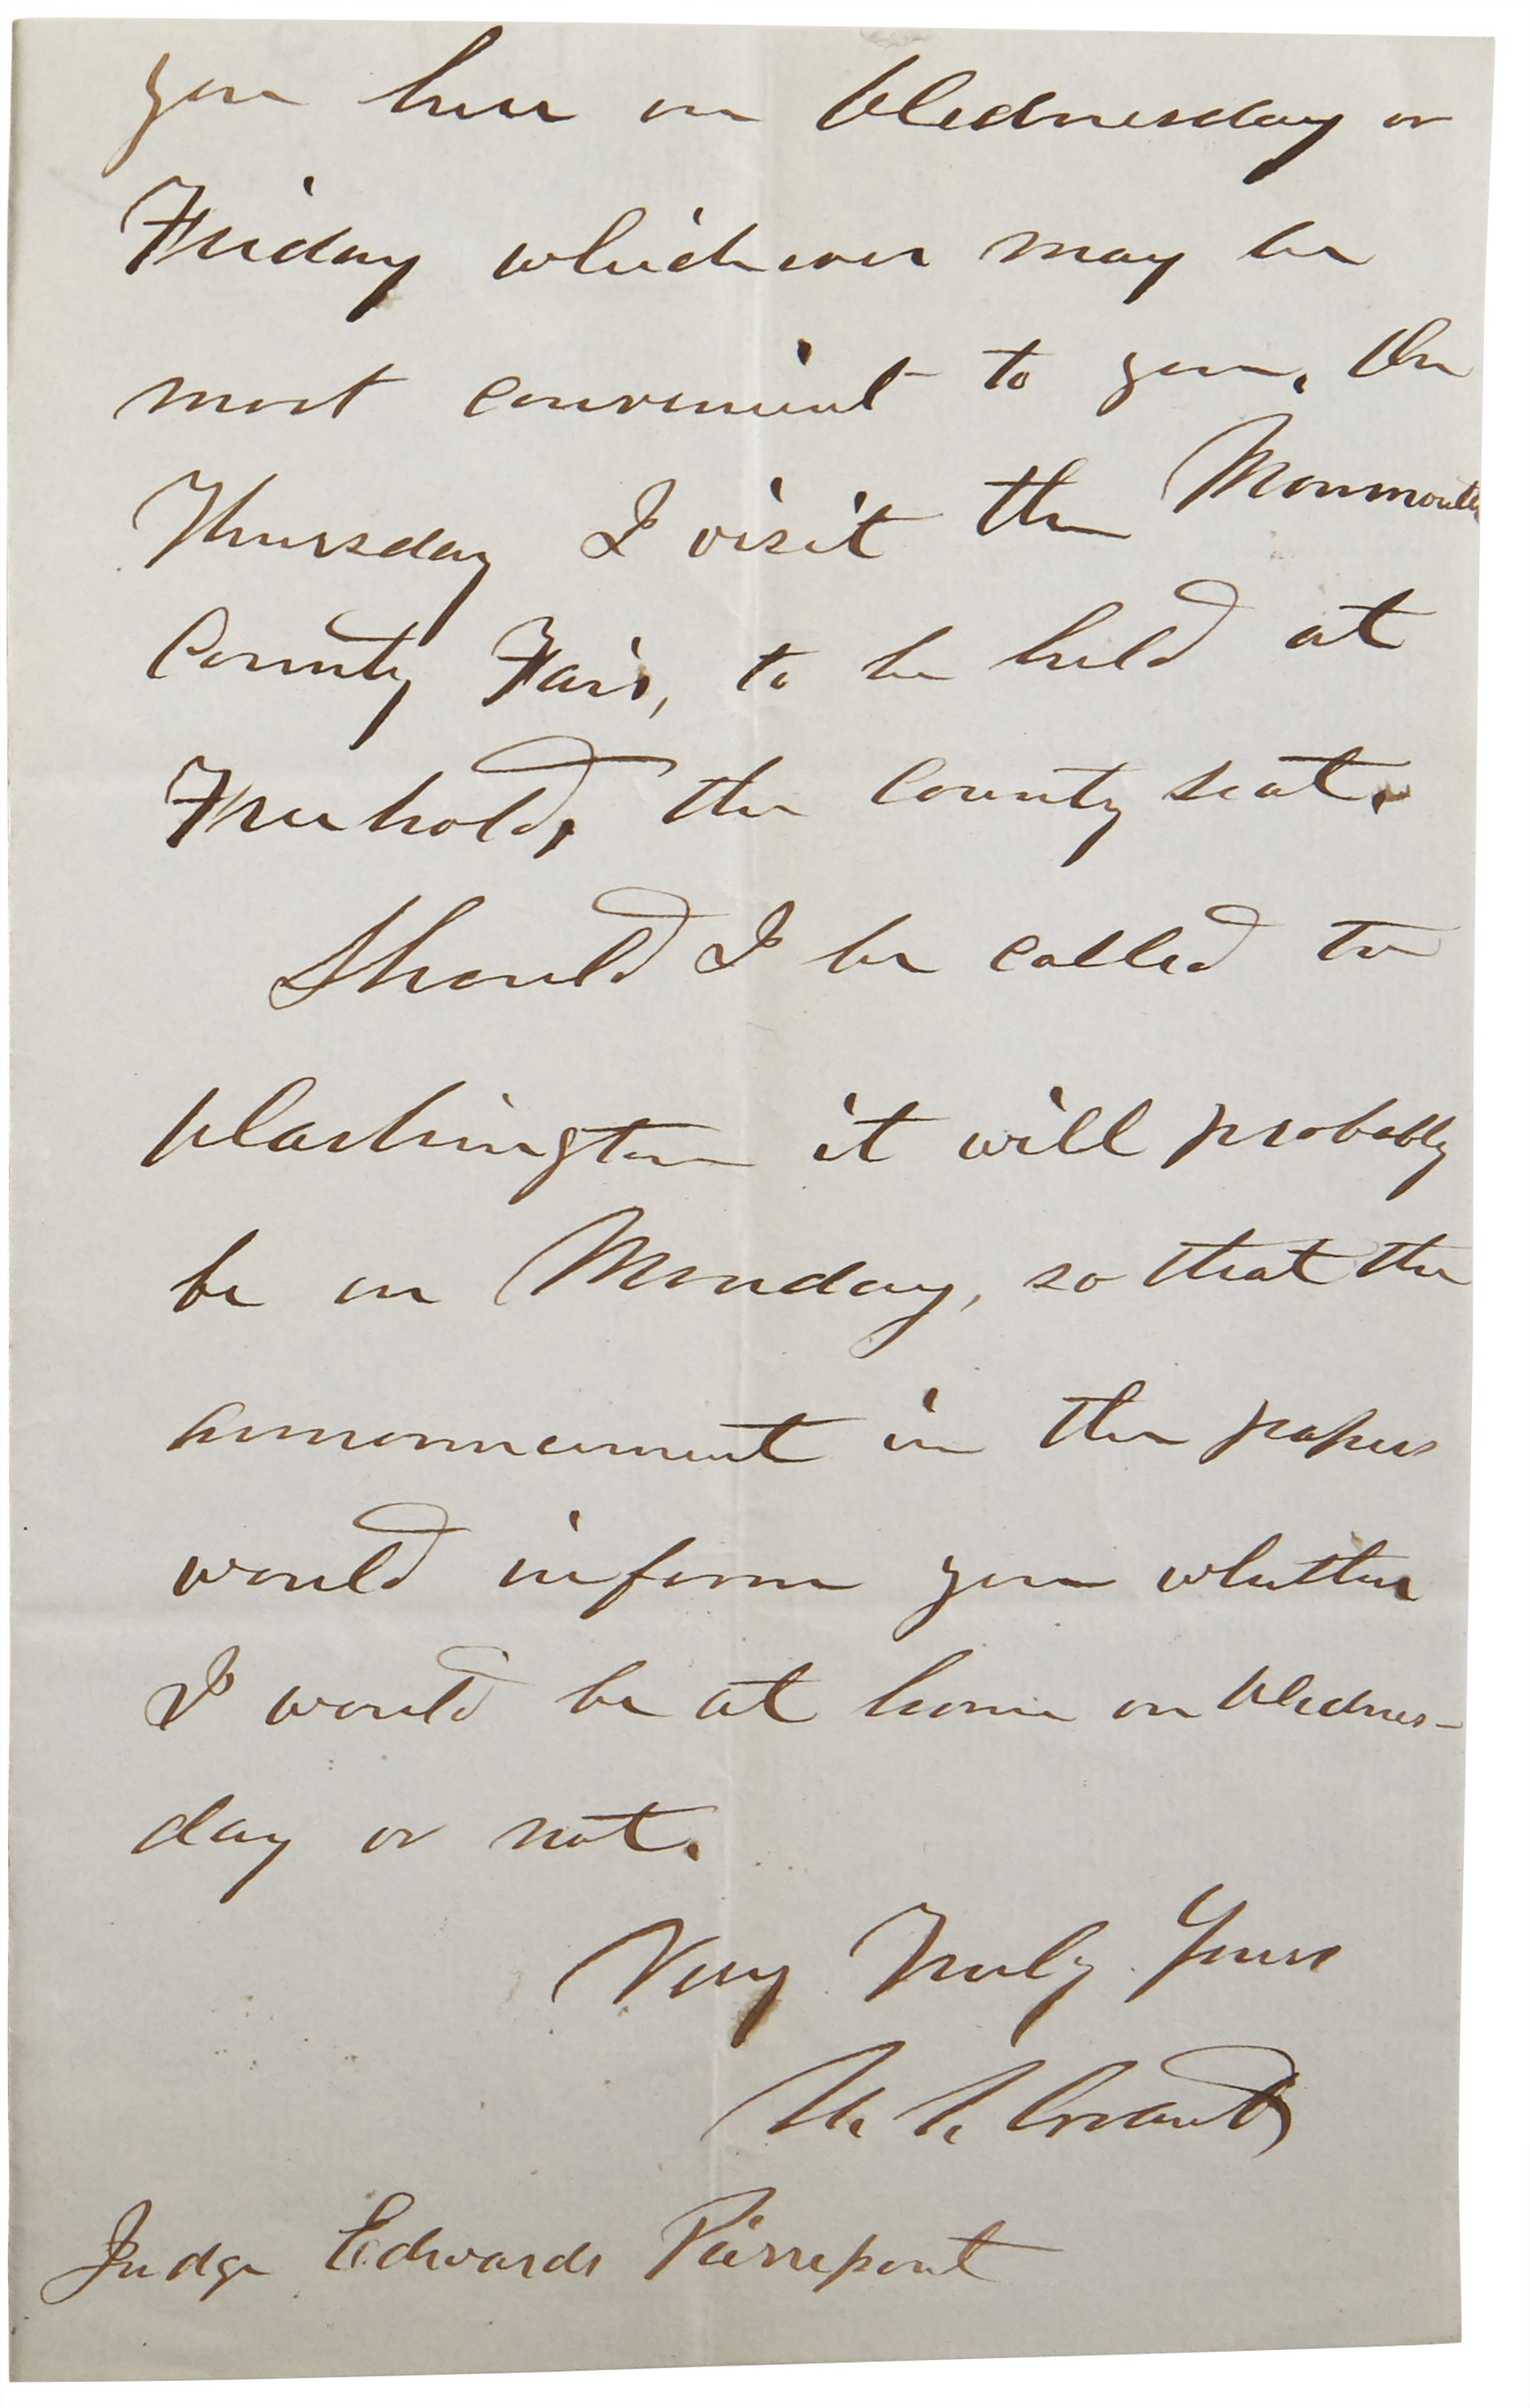 you here on Wednesday or
Friday whichever may be
most convenient to you. On
Thursday I visit the Monmouth
County Fair, to be held at
Freehold, the County seat.
Should I be called to
Washington it will probably
be on Monday, so that the
announcement in the papers
would inform you whether
I would be at home on Wednes-
day or not.
Very Truly Yours
U. S. Grant
Judge Edwards Pierrepont